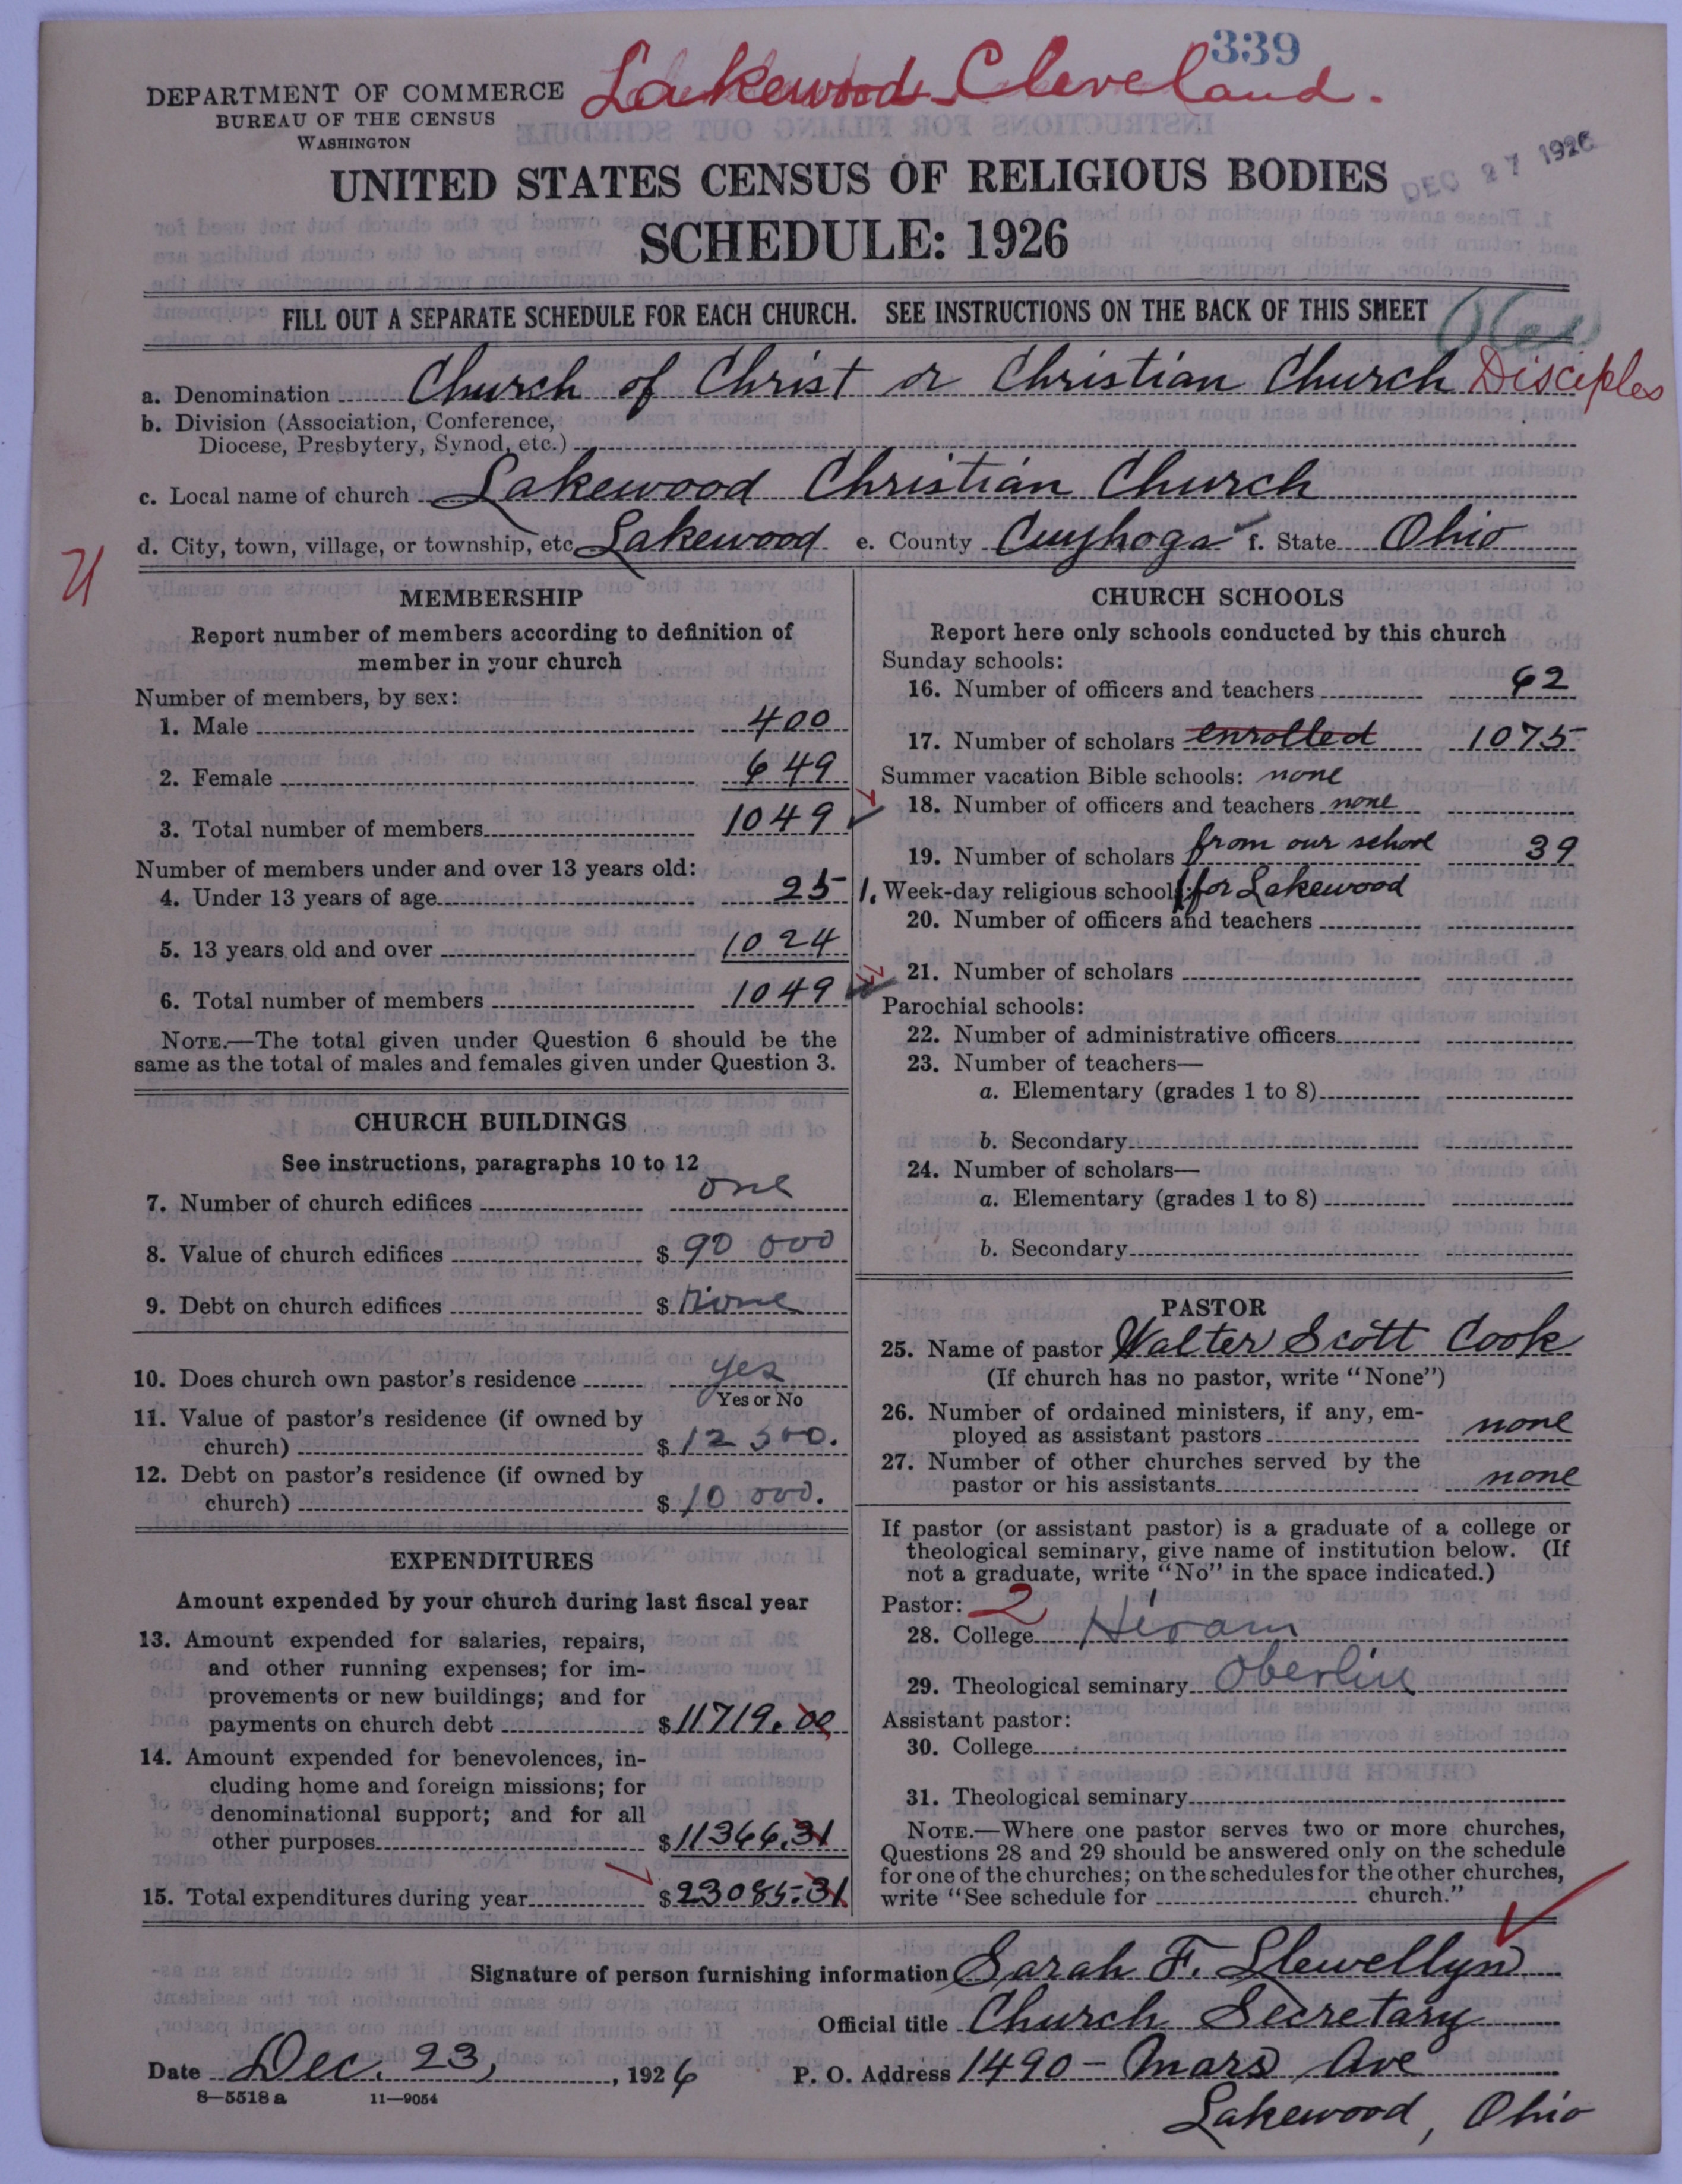 339
Lakewood Cleveland.
DEPARTMENT OF COMMERCE
BUREAU OF THE CENSUS
WASHINGTON
DEC 27 1926
UNITED STATES CENSUS OF RELIGIOUS BODIES
SCHEDULE: 1926
FILL OUT A SEPARATE SCHEDULE FOR EACH CHURCH. SEE INSTRUCTIONS ON THE BACK OF THIS SHEET
a. Denomination Church of Christ or Christian Church Disciples
b. Division (Association, Conference,
Diocese, Presbytery, Synod, etc.)
c. Local name of church Lakewood Christian Church
d. City, town, village, or township, etc Lakewood e. County Cuyhoga f. State Ohio
MEMBERSHIP
Report number of members according to definition of
member in your church
Number of members, by sex:
1. Male 400
2. Female 649
3. Total number of members 1049
Number of members under and over 13 years old:
4. Under 13 years of age 25
5. 13 years old and over 1024
6. Total number of members 1049
NOTE.—The total given under Question 6 should be the
same as the total of males and females given under Question 3.
CHURCH BUILDINGS
See instructions, paragraphs 10 to 12
7. Number of church edifices one
8. Value of church edifices $ 90 000
9. Debt on church edifices $ None
10. Does church own pastor's residence yes
Yes or No
11. Value of pastor's residence (if owned by
church) $ 12 500.
12. Debt on pastor's residence (if owned by
church) $ 10 000.
EXPENDITURES
Amount expended by your church during last fiscal year
13. Amount expended for salaries, repairs,
and other running expenses; for im-
provements or new buildings; and for
payments on church debt $ 11719.00
14. Amount expended for benevolences, in-
cluding home and foreign missions; for
denominational support; and for all
other purposes $ 11366.31
15. Total expenditures during year $ 23085.31
CHURCH SCHOOLS
Report here only schools conducted by this church
Sunday schools:
16. Number of officers and teachers 62
17. Number of scholars enrolled 1075
Summer vacation Bible schools: none
18. Number of officers and teachers none
19. Number of scholars from our school 39
1. Week-day religious schools: for Lakewood
20. Number of officers and teachers
21. Number of scholars
Parochial schools:
22. Number of administrative officers
23. Number of teachers—
a. Elementary (grades 1 to 8)
b. Secondary
24. Number of scholars—
a. Elementary (grades 1 to 8)
b. Secondary
PASTOR
25. Name of pastor Walter Scott Cook
(If church has no pastor, write "None")
26. Number of ordained ministers, if any, em-
ployed as assistant pastors none
27. Number of other churches served by the
pastor or his assistants none
If pastor (or assistant pastor) is a graduate of a college or
theological seminary, give name of institution below. (If
not a graduate, write "No" in the space indicated.)
Pastor: 2
28. College Hiram
29. Theological seminary Oberlin
Assistant pastor:
30. College
31. Theological seminary
NOTE.—Where one pastor serves two or more churches,
Questions 28 and 29 should be answered only on the schedule
for one of the churches; on the schedules for the other churches,
write "See schedule for church."
Signature of person furnishing information Sarah F. Llewellyn
Official title Church Secretary
Date Dec. 23, 1926 P. O. Address 1490 - Mars Ave
8—5518 a 11—9054
Lakewood, Ohio